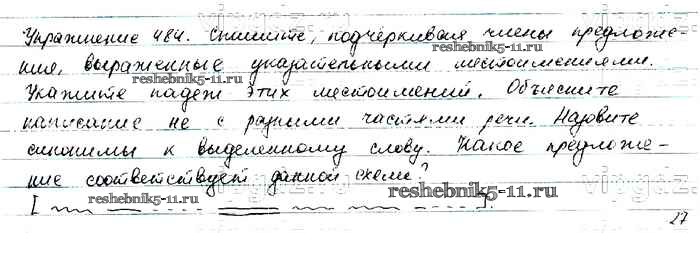 Упражнение 484. Спишите, подчёркивая члены предложе-
ния, выраженные указательными местоимениями.
Укажите падеж этих местоимений. Объясните
написание не с разными частями речи. Назовите
синонимы к выделенному слову. Какое предложе-
ние соответствует данной схеме?
[ ].
27
reshebnik5-11.ru
reshebnik5-11.ru
reshebnik5-11.ru
reshebnik5-11.ru
reshebnik5-11.ru